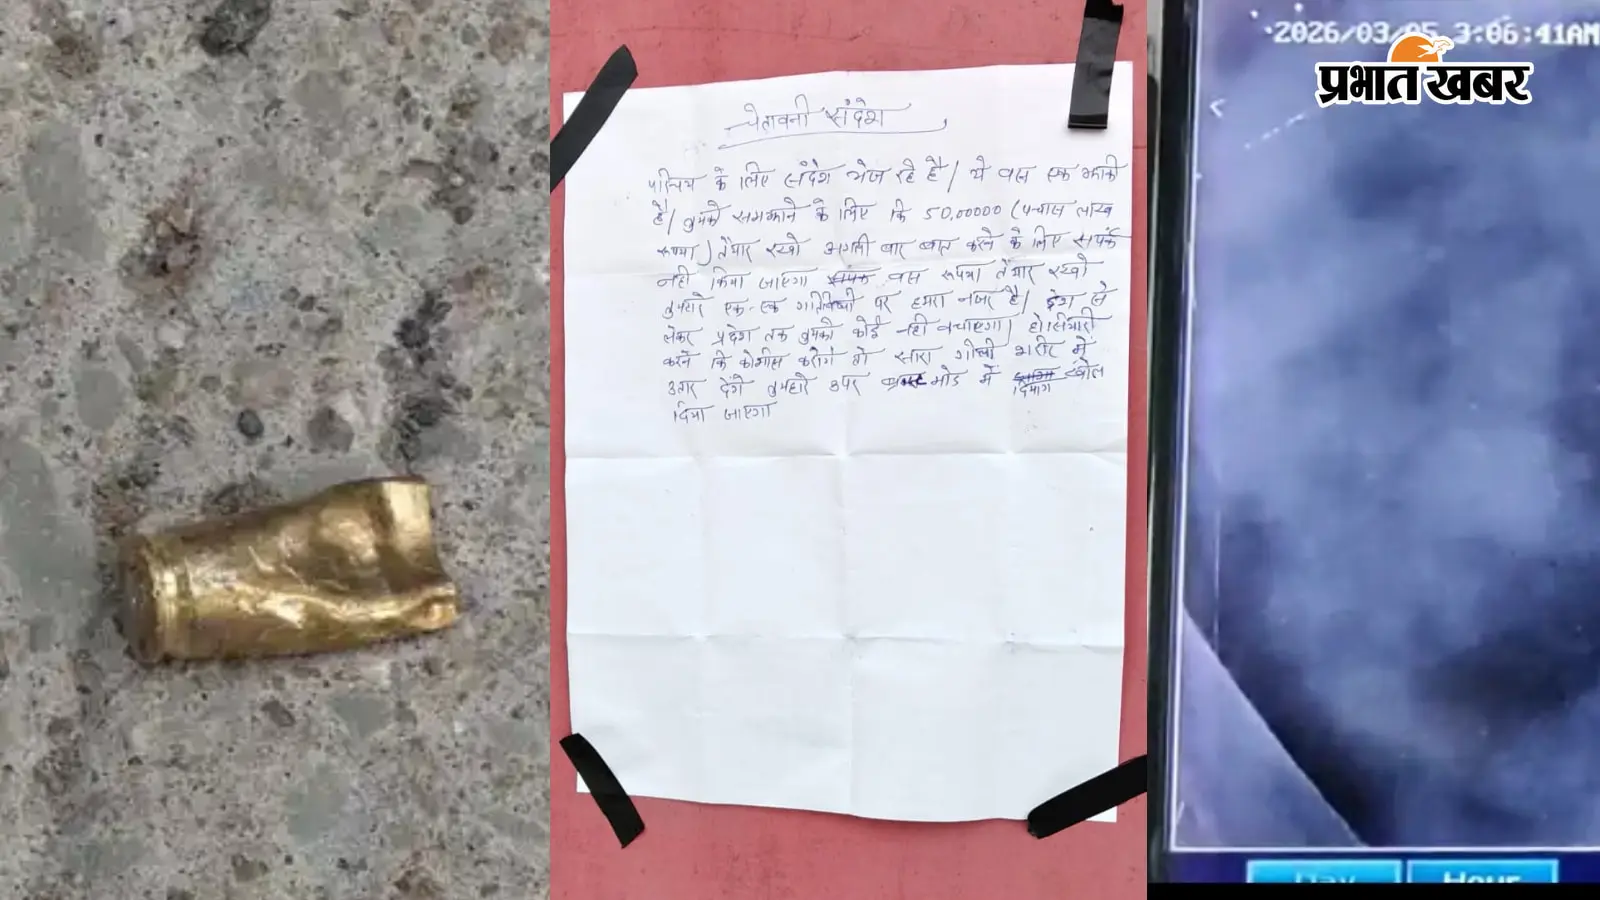 चेतावनी संदेश
परिचय के लिए संदेश भेज रहे है/ ये बस एक झाकी
है/ तुमको समझाने के लिए कि 50,00000 (पचास लाख
रूपया) तैयार रखो अगली बार बात करने के लिए सपर्क
नही किया जाएगा बस रूपया तैयार रखो
तुम्हारे एक-एक गतिविधी पर हमरा नजर है/ देश से
लेकर प्रदेश तक तुमको कोई नही बचाएगा/ होशियारी
करने कि कोशीस करोगे तो सारा गोली शरीर में
उतार देंगे तुम्हारे उपर मोड में दिमाग खोल
दिया जाएगा
2026/03/05 3:06:41AM
प्रभात खबर
Day
Hour